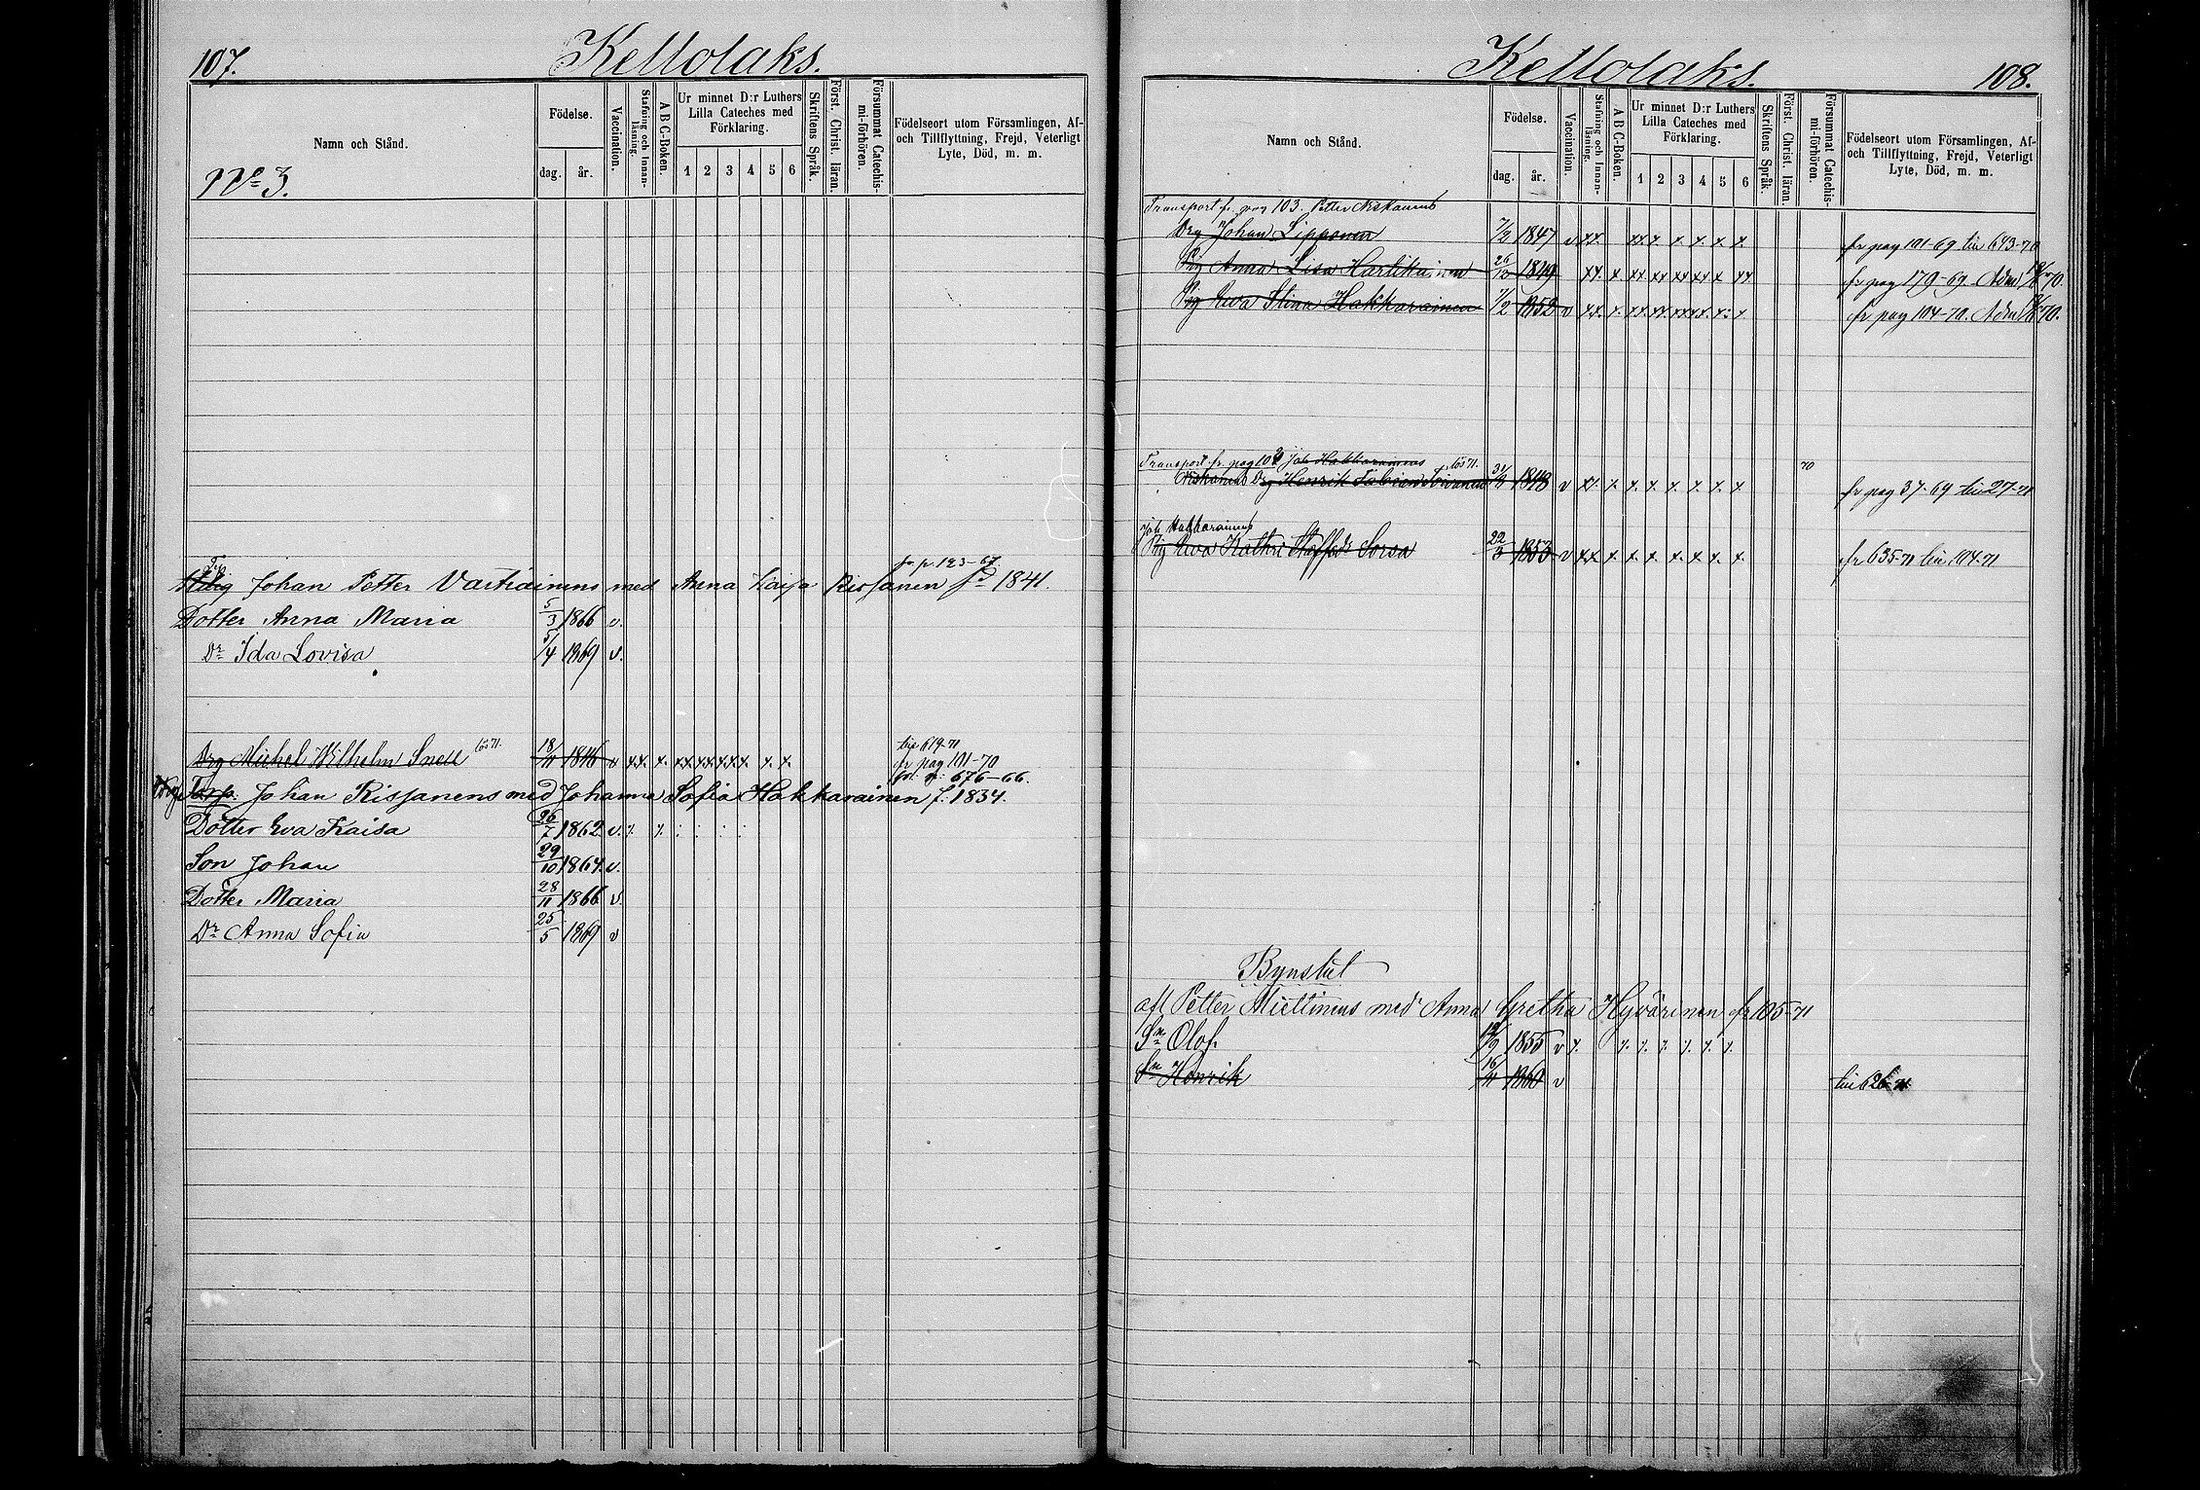 107.
Kellolaks.
Namn och Stånd.
Födelse.
dag.
år.
Vaccination.
Stafning och Innan-läsning.
A B C-Boken.
Ur minnet D:r Luthers
Lilla Cateches med
Förklaring.
1 2 3 4 5 6
Skriftens Språk.
Först. Christ. läran.
Försummat Catechis-mi-förhören.
Födelseort utom Församlingen, Af-
och Tillflyttning, Frejd, Veterligt
Lyte, Död, m. m.
No 3.
fr p. 123-67
Johan Petter Vartiainens med Anna Kaisa Rissanen fd 1841.
Dotter Anna Maria 5/3 1866 v.
Dr Ida Lovisa 5/4 1869 v.
Drg Michel Wilhelm Snell lös 71. 18/11 1846 v xx x. xx xx xx xx x. x.
till 619-71
fr pag 101-70
676-66.
Johan Rissanens med Johanna Sofia Hakkarainen f: 1834.
Dotter Eva Kaisa 26/7 1862 v. x. x.
Son Johan 29/10 1864. v.
Dotter Maria 28/11 1866 v.
Dr Anna Sofia 25/5 1869 v
Kellolaks.
108.
Namn och Stånd.
Födelse.
dag.
år.
Vaccination.
Stafning och Innan-läsning.
A B C-Boken.
Ur minnet D:r Luthers
Lilla Cateches med
Förklaring.
1 2 3 4 5 6
Skriftens Språk.
Först. Christ. läran.
Försummat Catechis-mi-förhören.
Födelseort utom Församlingen, Af-
och Tillflyttning, Frejd, Veterligt
Lyte, Död, m. m.
Transport fr. pag 103. Petter Niskanens
Drg Johan Lipponen 7/2 1847 v xx. xx x x. x. x. x. fr pag 101-69 till 693-70
Pig Anna Lisa Hartikainen 26/10 1849 xx. x xx xx xx xx x xx fr pag 179-69.
Pig Ewa Stina Hakkarainen 7/2 1852 v xx. x. fr pag 104-70.
Transport fr. pag 103 Joh Hakkarainens
Niskanens Drg Henrik Fabian Toivanen lös 71. 1848 v xx. x. x. x. x. x. x. x. 70 fr pag 37-69 till 27-71
Joh Hakkarainens
Pig Ewa Kathri Staffsdr Sorsa 22/3 1853 v xx x. x. x. x. x. x. x. fr 635-71 till 104-71
Bynstul
afl Petter Miettinens med Anna Gretha Hyvärinen fr 105-71
Sn Olof. 1855 v x. x. x. x. x. x. x.
Sn Henrik 16/11 1860 v till 626-71